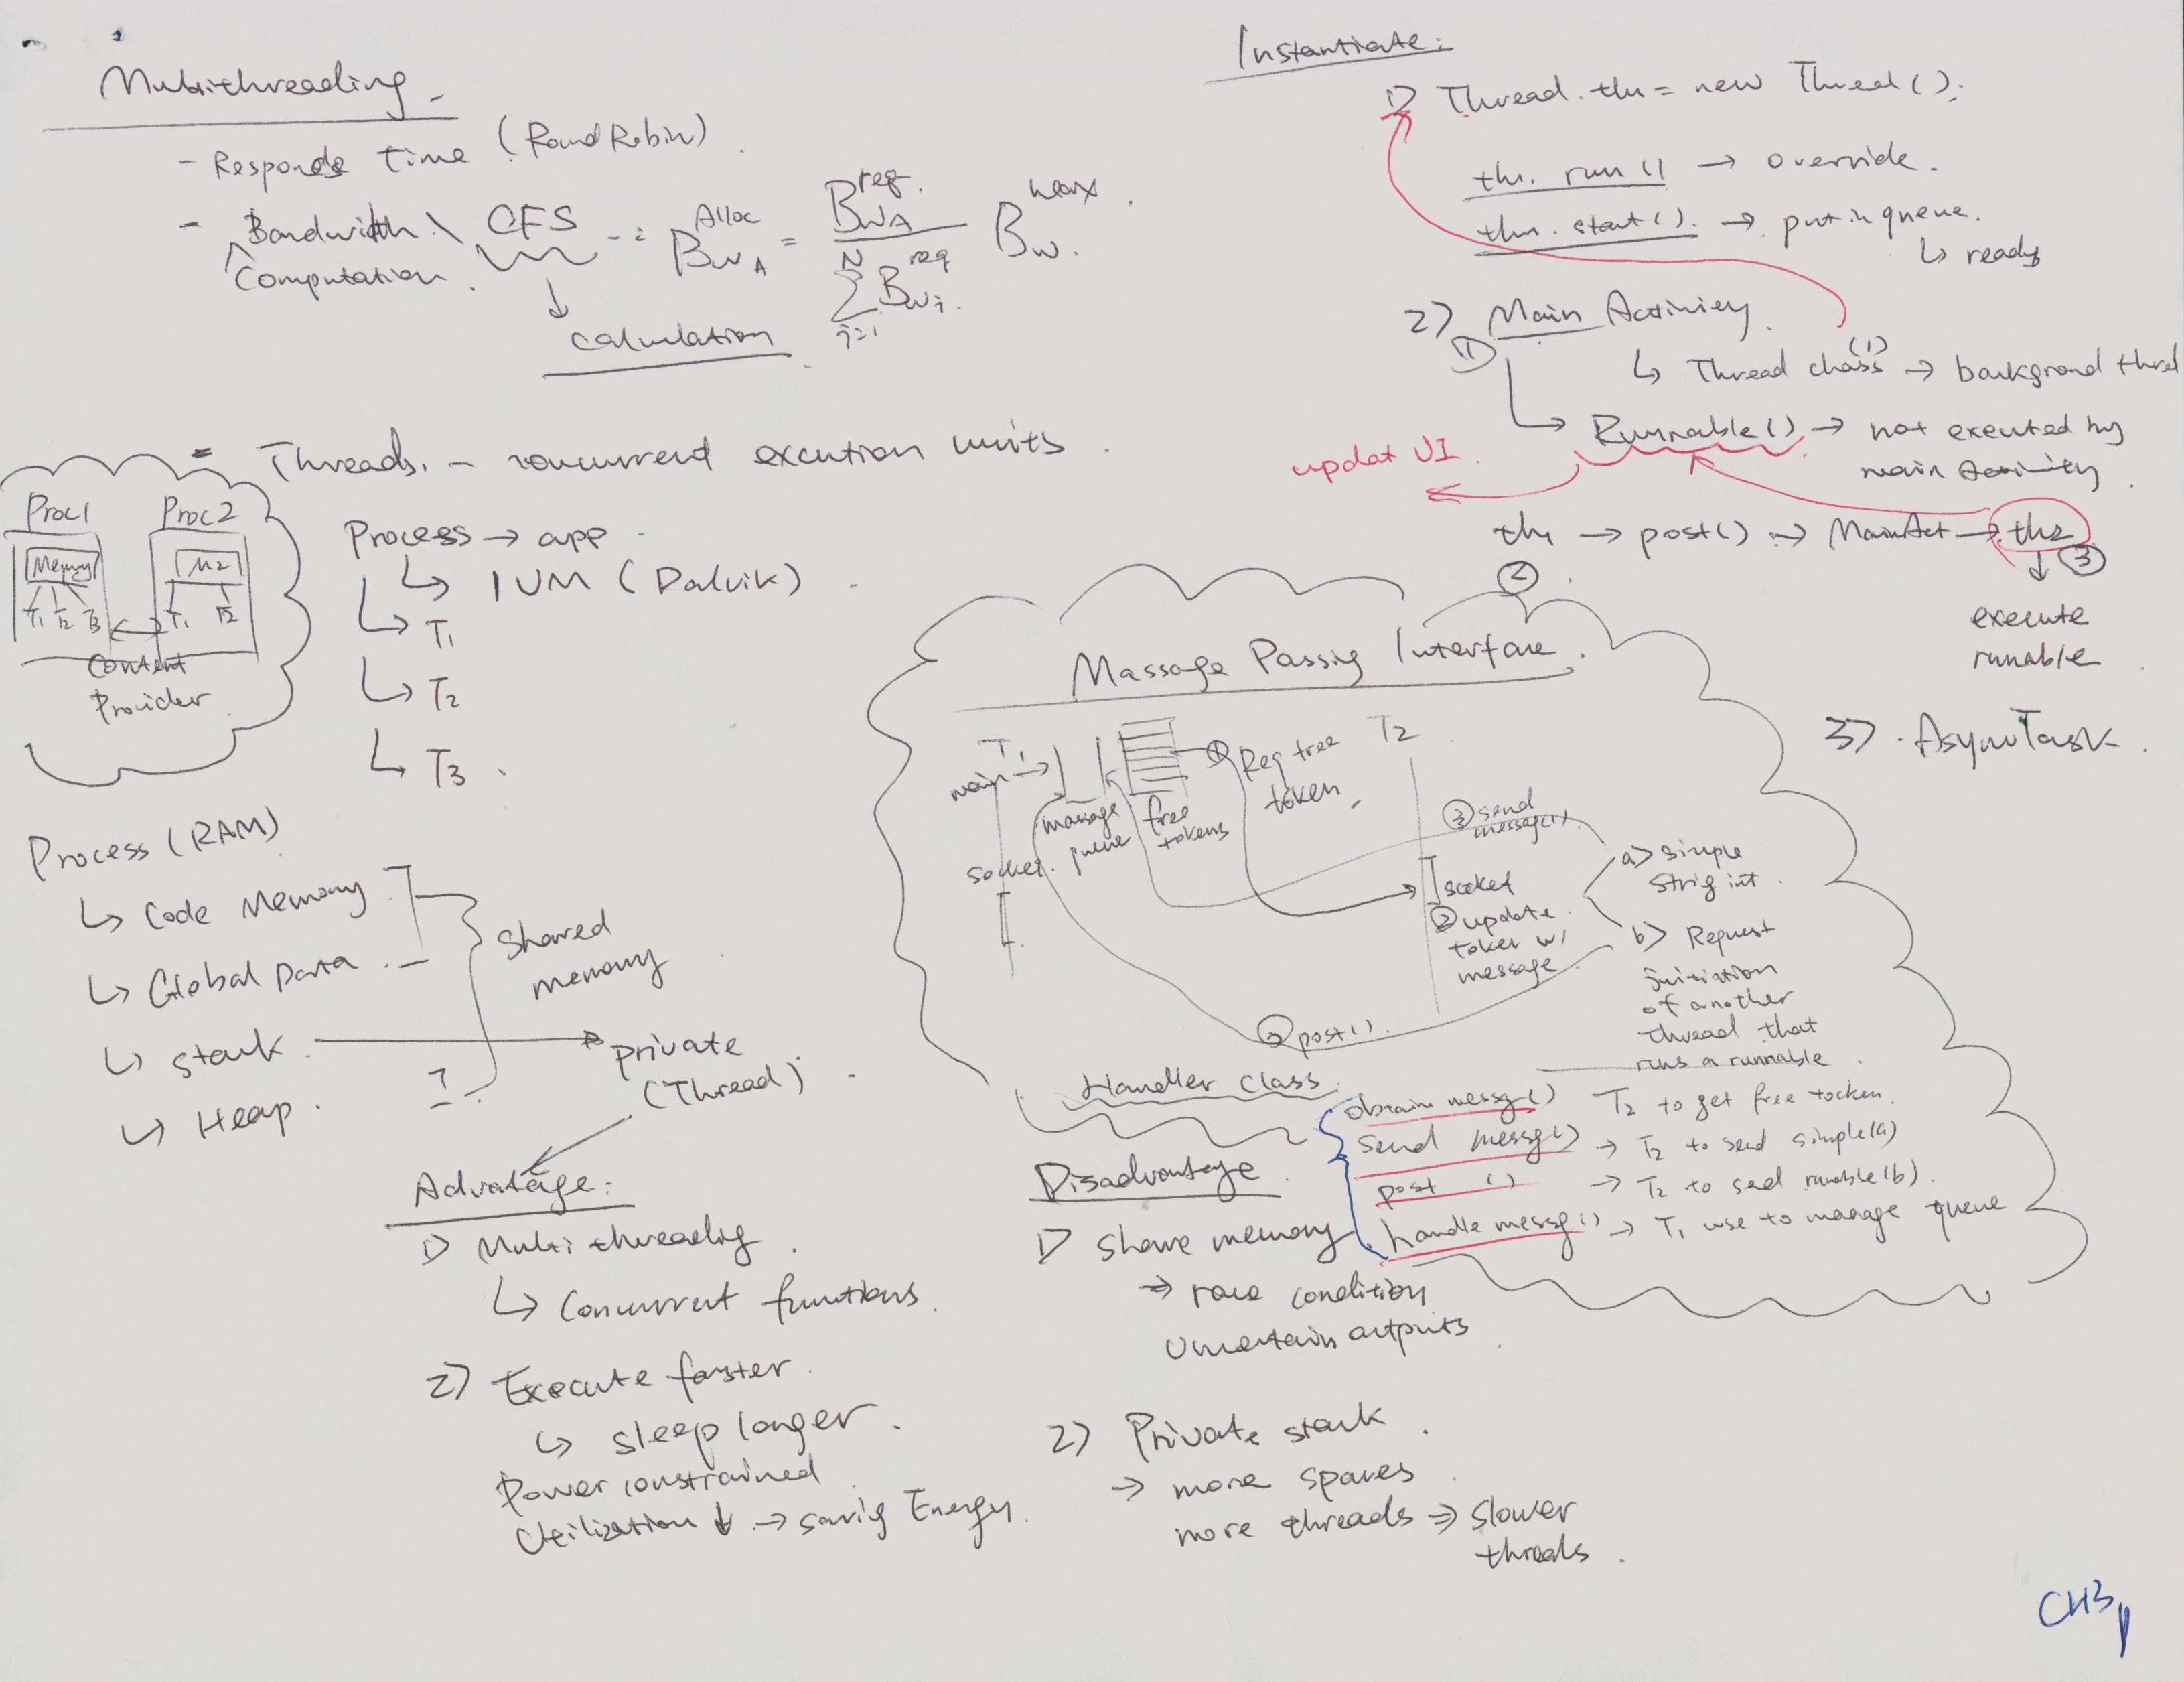 Multithreading
- Responds Time (Round Robin)
- Bandwidth \ CFS -: Bw_A^Alloc = Bw_A^req. / Σ_{i=1}^{N} Bw_i^req Bw^max.
Computation.
↓
calculation
= Threads. - concurrent excution units.
Proc1 Proc2
Memory M2
T1 T2 T3 ↔ T1 T2
Content
Provider
Process → app
↳ 1 VM (Dalvik)
↳ T1
↳ T2
↳ T3
Process (RAM)
↳ Code Memory
↳ Global Data
Shared
memory
↳ stack → private
(Thread)
↳ Heap.
Advatage:
1) Multi threadig
↳ Concurrent functions
2) Execute faster
↳ sleep longer
Power constrained
Utilization ↓ → savig Energy
Disadvantage
1) Share memory
→ race condition
Uncertain outputs
2) Private stack
→ more spaces
more threads ⇒ slower
threads
Instantiate:
1) Thread. th1 = new Thread();
th1. run () → override.
th1. start() → put in queue.
↳ ready
2) Main Activity
①
↳ Thread class (1) → background thread
↳ Runnable() → not executed by
main activity
updat UI
th1 → post() → MainAct → th2
② ↓ ③
execute
runable
3) AsyncTask
Massage Passig Interface.
T1 T2
main →
massage
queue
free
tokens
① Req free
token,
socket.
③ send
message().
] socket
② update
token w/
message
a) simple
Strig int.
b) Request
initiation
of another
thread that
runs a runnable
③ post().
Handler Class
obtain messg() T2 to get free tocken.
send messg() → T2 to send simple(a)
post () → T2 to sed runable(b)
handle messg() → T1 use to manage queue
CH3